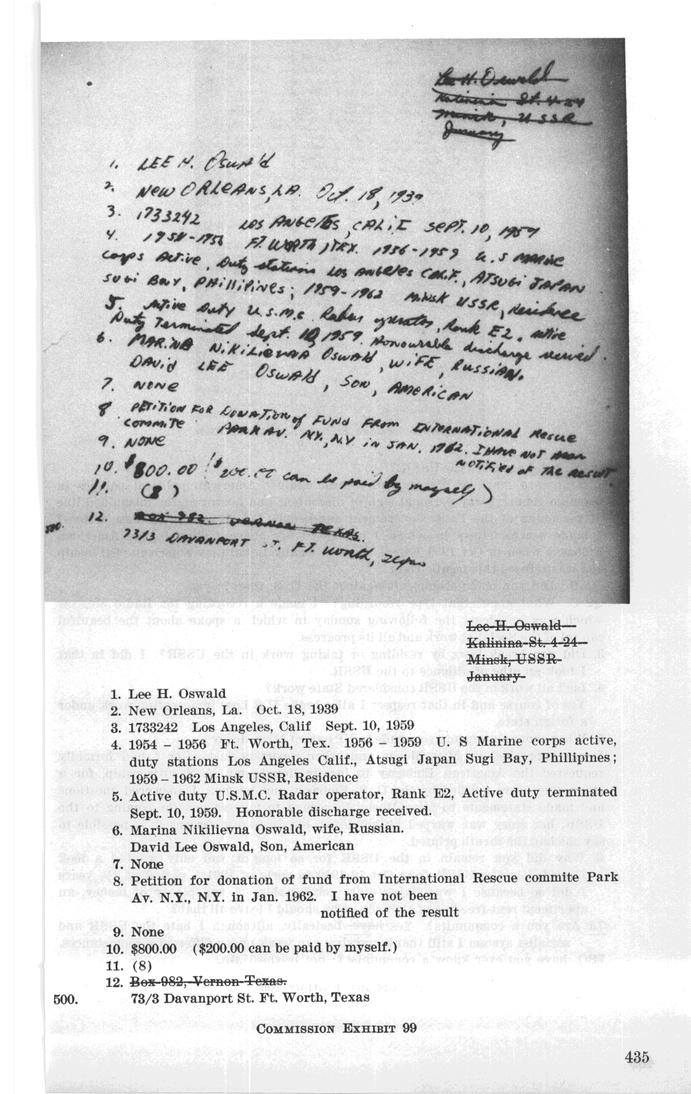 Lee H. Oswald
Kalinina St. 4-24
Minsk, USSR
January
1. LEE H. Oswald
2. NEW ORLEANS, LA. Oct. 18, 1939
3. 1733242 LOS ANGELES, CALIF SEPT. 10, 1959
4. 1954-1956 FT. WORTH, TEX. 1956-1959 U.S MARINE
corps Active, Duty stations LOS ANGELES CALIF., ATSUGI JAPAN
SUGI BAY, PHILLIPINES; 1959-1962 MINSK USSR, Residence
5. Active Duty U.S.M.C. Radar operator, Rank E2, active
Duty Terminated Sept. 10, 1959. Honourable discharge received.
6. MARINA NIKILIEVNA OSWALD, WIFE, RUSSIAN.
DAVID LEE OSWALD, SON, AMERICAN
7. NONE
8 PETITION FOR DONATION of FUND FROM INTERNATIONAL RESCUE
COMMITE PARK AV. N.Y., N.Y IN JAN. 1962. I HAVE NOT BEEN
NOTIFIED OF THE RESULT
9. NONE
10. $800.00 ($200.00 can be paid by myself)
11. (8)
12. BOX 982 VERNON TEXAS.
500. 73/3 DAVANPORT ST. FT. WORTH, Texas
Lee H. Oswald
Kalinina St. 4-24
Minsk, USSR
January
1. Lee H. Oswald
2. New Orleans, La. Oct. 18, 1939
3. 1733242 Los Angeles, Calif Sept. 10, 1959
4. 1954 – 1956 Ft. Worth, Tex. 1956 – 1959 U. S Marine corps active,
duty stations Los Angeles Calif., Atsugi Japan Sugi Bay, Phillipines;
1959 – 1962 Minsk USSR, Residence
5. Active duty U.S.M.C. Radar operator, Rank E2, Active duty terminated
Sept. 10, 1959. Honorable discharge received.
6. Marina Nikilievna Oswald, wife, Russian.
David Lee Oswald, Son, American
7. None
8. Petition for donation of fund from International Rescue commite Park
Av. N.Y., N.Y. in Jan. 1962. I have not been
notified of the result
9. None
10. $800.00 ($200.00 can be paid by myself.)
11. (8)
12. Box-982, Vernon-Texas.
500. 73/3 Davanport St. Ft. Worth, Texas
COMMISSION EXHIBIT 99
435